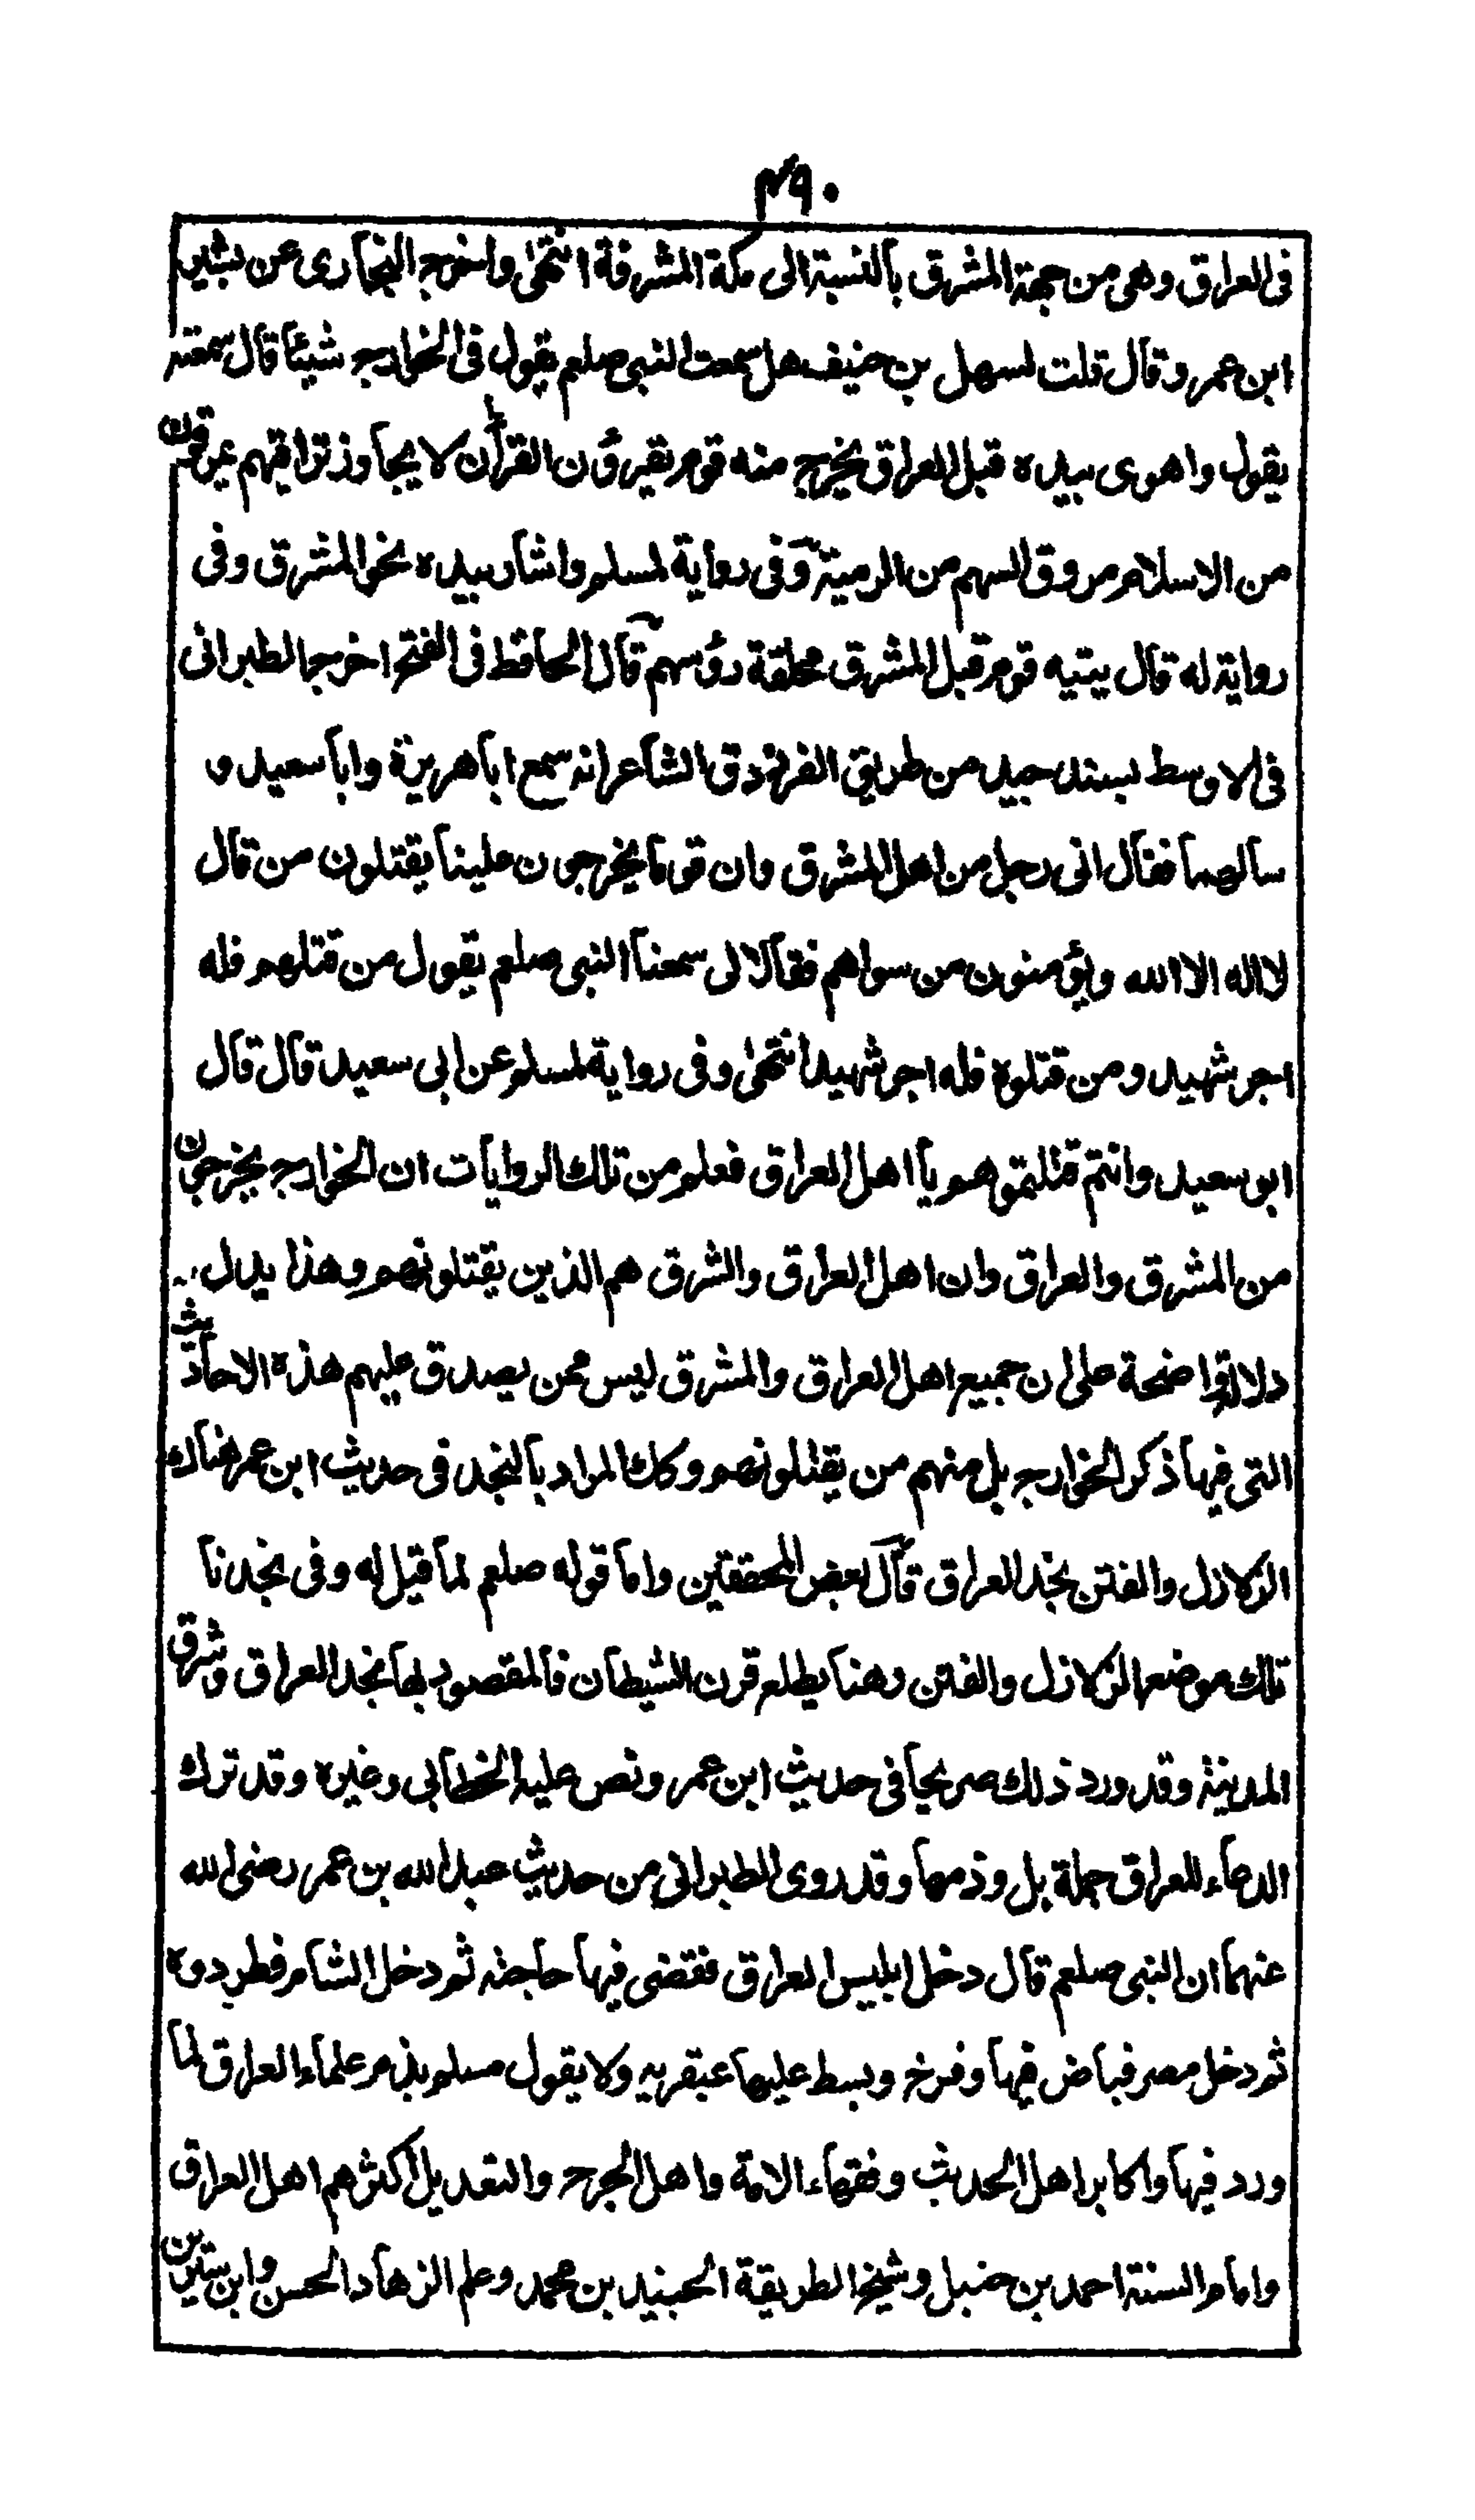 ٤٩٠
فى العراق وهى من جهة المشرق بالنسبة الى مكة المشرفة انتهى واخرج البخارى عن بشير
ابن عمرو قال قلت لسهل بن حنيف هل سمعت النبى صلعم يقول فى الخوارج شيئا قال سمعته
يقول واهوى بيده قبل العراق يخرج منه قوم يقرؤن القرأن لا يجاوز تراقيهم يمرقون
من الاسلام مروق السهم من الرمية وفى رواية لمسلم واشار بيده نحو المشرق وفى
رواية له قال يتيه قوم قبل المشرق محلقة رؤسهم قال الحافظ فى الفتح اخرج الطبرانى
فى الاوسط بسند جيد من طريق الفرزدق الشاعر انه سمع ابا هريرة وابا سعيد و
سالهما فقال انى رجل من اهل المشرق وان قوما يخرجون علينا يقتلون من قال
لا اله الا الله ويؤمنون من سواهم فقالا لى سمعنا النبى صلعم يقول من قتلهم فله
اجر شهيد ومن قتلوه فله اجر شهيد انتهى وفى رواية لمسلم عن ابى سعيد قال قال
ابو سعيد وانتم قتلتموهم يا اهل العراق فعلم من تلك الروايات ان الخوارج يخرجون
من المشرق والعراق وان اهل العراق والشرق هم الذين يقتلونهم وهذا يدل
دلالة واضحة على ان جميع اهل العراق والمشرق ليس ممن يصدق عليهم هذه الاحاديث
التى فيها ذكر الخوارج بل منهم من يقتلونهم وكك المراد بالنجد فى حديث ابن عمر هناك
الزلازل والفتن نجد العراق قال بعض المحققين واما قوله صلعم لما قيل له وفى نجدنا
تلك موضع الزلازل والفتن وهنا يطلع قرن الشيطان فالمقصود بها نجد العراق وشرق
المدينة وقد ورد ذلك صريحا فى حديث ابن عمر ونص عليه الخطابى وغيره وقد ترك
الدعاء للعراق جملة بل وذمها وقد روى الطبرانى من حديث عبد الله بن عمر رضى الله
عنهما ان النبى صلعم قال دخل ابليس العراق فقضى فيها حاجته ثم دخل الشام فطردوه
ثم دخل مصر فباض فيها وفرخ وبسط عليها عبقريه ولا يقول مسلم بذم علماء العراق لما
ورد فيها واكابر اهل الحديث وفقهاء الامة واهل الجرح والتعديل اكثرهم اهل العراق
وامام السنة احمد بن حنبل وشيخ الطريقة الجنيد بن محمد وعلم الزهاد الحسن وابن سيرين